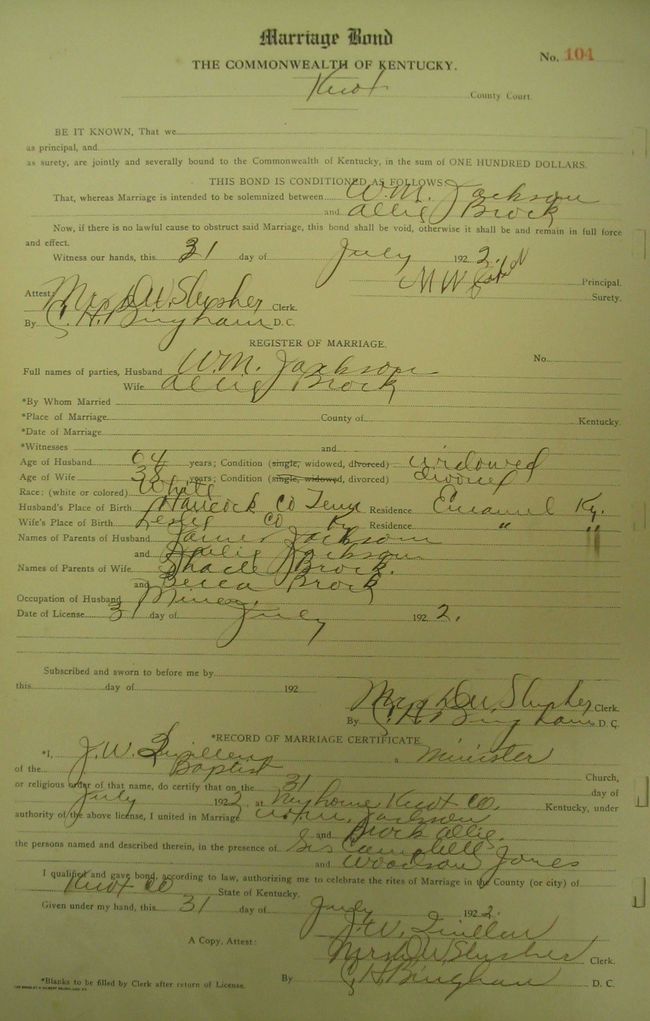 Marriage Bond
No. 104
THE COMMONWEALTH OF KENTUCKY.
Knox County Court.
BE IT KNOWN, That we
as principal, and
as surety, are jointly and severally bound to the Commonwealth of Kentucky, in the sum of ONE HUNDRED DOLLARS.
THIS BOND IS CONDITIONED AS FOLLOWS:
That, whereas Marriage is intended to be solemnized between W.M. Jackson
and Allie Brock
Now, if there is no lawful cause to obstruct said Marriage, this bond shall be void, otherwise it shall be and remain in full force
and effect.
Witness our hands, this 31 day of July 192 2.
M W Principal.
Surety.
Attest: Mrs D W. Slusher Clerk.
By C. H. Bingham D. C.
REGISTER OF MARRIAGE.
No.
Full names of parties, Husband W.M. Jackson
Wife Allie Brock
*By Whom Married
*Place of Marriage County of Kentucky.
*Date of Marriage
*Witnesses and
Age of Husband 64 years; Condition (single, widowed, divorced) widowed
Age of Wife 38 years; Condition (single, widowed, divorced) divorced
Race: (white or colored) White
Husband's Place of Birth Hancock Co Tenn Residence Emanuel Ky.
Wife's Place of Birth Leslie Co Ky Residence " "
Names of Parents of Husband James Jackson
and Jackson
Names of Parents of Wife Shade Brock.
and Becca Brock
Occupation of Husband Miner.
Date of License 31 day of July 192 2.
Subscribed and sworn to before me by
this day of 192
Mrs D W Slusher Clerk.
By C. H. Bingham D. C.
*RECORD OF MARRIAGE CERTIFICATE
*I, J. W. a Minister
of the Baptist Church,
or religious order of that name, do certify that on the 31 day of
July 192 2 at my home Knox Co. Kentucky, under
authority of the above license, I united in Marriage W.M. Jackson
and Brock Allie.
the persons named and described therein, in the presence of Campbell
and Woodson Jones
I qualified and gave bond, according to law, authorizing me to celebrate the rites of Marriage in the County (or city) of
Knox Co State of Kentucky.
Given under my hand, this 31 day of July 192 2.
J. W.
A Copy, Attest: Mrs D W. Slusher Clerk.
*Blanks to be filled by Clerk after return of License. By C. H. Bingham D. C.